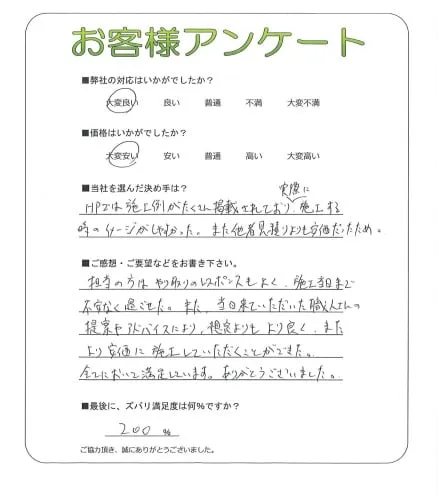 お客様アンケート
■弊社の対応はいかがでしたか?
大変良い 良い 普通 不満 大変不満
■価格はいかがでしたか?
大変安い 安い 普通 高い 大変高い
■当社を選んだ決め手は?
実際に
HPでは施工例がたくさん掲載されており、施工する
時のイメージがしやすかった。また他者見積りよりも安価だったため。
■ご感想・ご要望などをお書き下さい。
担当の方はやり取りのレスポンスもよく、施工当日まで
不安なく過ごせた。また、当日来ていただいた職人さんの
提案やアドバイスにより、想定よりもより良く、また
より安価に施工していただくことができた。
全てにおいて満足しています。ありがとうございました。
■最後に、ズバリ満足度は何%ですか?
200 %
ご協力頂き、誠にありがとうございました。